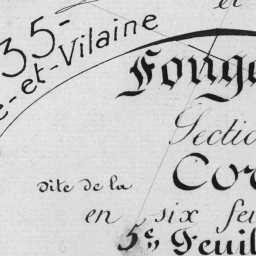 et
35-
e-et-Vilaine
Fouge
Sectio
dite de la Cor
en six feu
5e Feuil